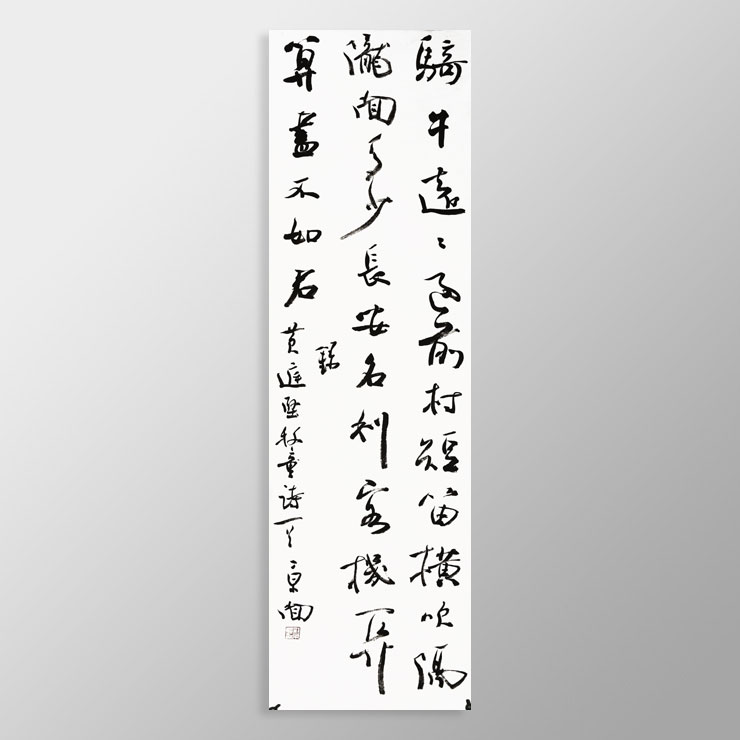 騎牛遠〻過前村短笛橫吹隔
隴聞多少長安名利客機關
算盡不如君
錄
黃庭堅牧童詩一首